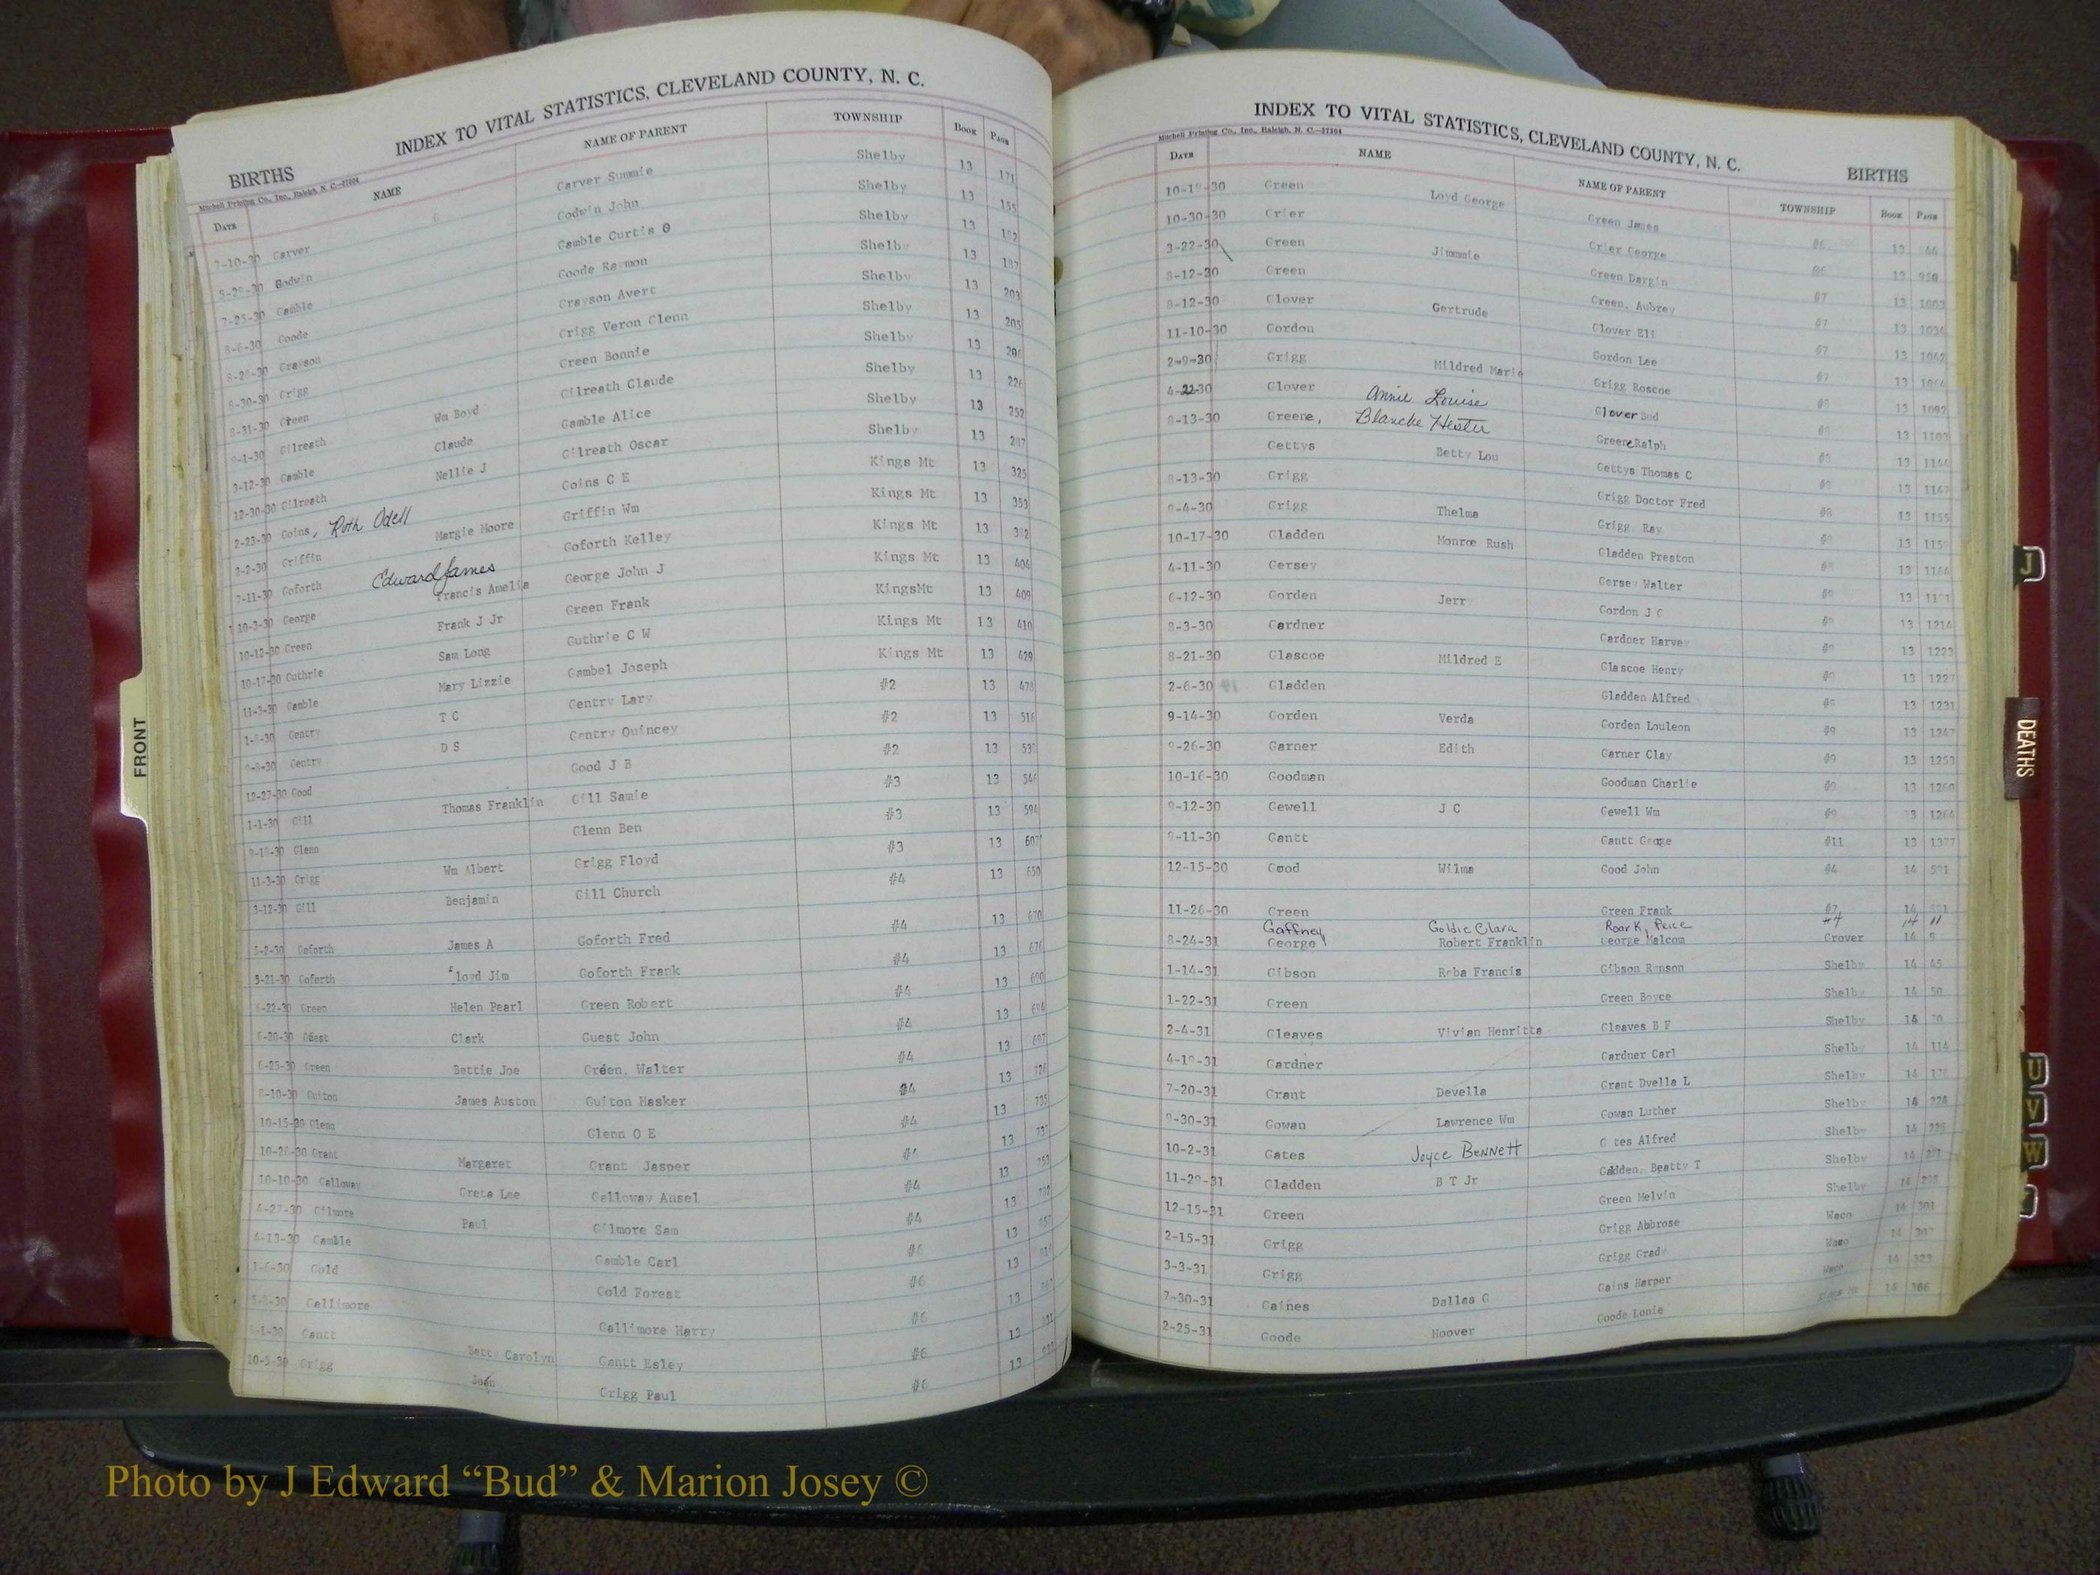 INDEX TO VITAL STATISTICS, CLEVELAND COUNTY, N. C.
BIRTHS
Mitchell Printing Co., Inc., Raleigh, N. C.—27304
DATE NAME NAME OF PARENT TOWNSHIP BOOK PAGE
7-10-30 Garver Garver Summie Shelby 13 171
Godwin Godwin John Shelby 13 155
7-25-30 Gamble Gamble Curtis O Shelby 13 182
8-6-30 Goode Goode Raymon Shelby 13 187
Grayson Grayson Avert Shelby 13 203
8-30-30 Grigg Grigg Veron Glenn Shelby 13 205
8-31-30 Green Wm Boyd Green Bonnie Shelby 13
9-1-30 Gilreath Claude Gilreath Claude Shelby 13 226
9-12-30 Gamble Nellie J Gamble Alice Shelby 13 252
12-30-30 Gilreath Gilreath Oscar Shelby 13 287
2-23-30 Goins, Ruth Odell Goins C E Kings Mt 13 325
2-2-30 Griffin Margie Moore Griffin Wm Kings Mt 13 353
7-11-30 Goforth Edward James Goforth Kelley Kings Mt 13 382
10-3-30 George Francis Amelia George John J Kings Mt 13 404
10-12-30 Green Frank J Jr Green Frank KingsMt 13 409
10-17-30 Guthrie Sam Long Guthrie C W Kings Mt 13 410
11-3-30 Gamble Mary Lizzie Gambel Joseph Kings Mt 13 429
Gentry T C Gentry Lary #2 13 478
Gentry D S Gentry Quincey #2 13 516
12-27-30 Good Good J B #2 13
1-1-30 Gill Thomas Franklin Gill Samie #3 13 546
Glenn Glenn Ben #3 13 594
11-3-30 Grigg Wm Albert Grigg Floyd #3 13 607
3-12-30 Gill Benjamin Gill Church #4 13 650
5-2-30 Goforth James A Goforth Fred #4 13 670
5-21-30 Goforth Floyd Jim Goforth Frank #4 13 676
6-22-30 Green Helen Pearl Green Robert #4 13 690
6-20-30 Guest Clark Guest John #4 13 694
6-25-30 Green Bettie Joe Green, Walter #4 13 697
8-10-30 Guiton James Auston Guiton Hasker #4 13
10-15-30 Glenn Glenn O E #4 13 735
Grant Margaret Grant Jasper #4 13
10-10-30 Galloway Greta Lee Galloway Ansel #4 13
4-27-30 Gilmore Paul Gilmore Sam #4 13
4-13-30 Gamble Gamble Carl #6 13
1-6-30 Gold Gold Forest #6 13
Gallimore Gallimore Harry #6 13
Gantt Betty Carolyn Gantt Esley #6 13
10-5-30 Grigg John Grigg Paul #6 13
FRONT
INDEX TO VITAL STATISTICS, CLEVELAND COUNTY, N. C.
Mitchell Printing Co., Inc., Raleigh, N. C.—27304
BIRTHS
DATE NAME NAME OF PARENT TOWNSHIP BOOK PAGE
Green Loyd George Green James #6 13
10-30-30 Grier Grier George #6 13 950
3-22-30 Green Jimmie Green Dargin #7 13 1003
8-12-30 Green Green, Aubrey #7 13 1034
8-12-30 Glover Gertrude Glover Eli #7 13 1042
11-10-30 Gordon Gordon Lee #7 13
2-9-30 Grigg Mildred Marie Grigg Roscoe #8 13 1092
4-22-30 Glover Annie Louise Glover Bud #8 13 1103
8-13-30 Greene, Blanche Hester Greene Ralph #8 13
Gettys Betty Lou Gettys Thomas C #8 13 1147
8-13-30 Grigg Grigg Doctor Fred #8 13 1155
9-4-30 Grigg Thelma Grigg, Ray #8 13
10-17-30 Gladden Monroe Rush Gladden Preston #8 13
4-11-30 Gersey Gersey Walter #9 13
6-12-30 Gorden Jerr Gordon J C #9 13 1214
8-3-30 Gardner Gardner Harvey #9 13 1223
8-21-30 Glascoe Mildred E Glascoe Henry #9 13 1227
2-6-30 Gladden Gladden Alfred #9 13 1231
9-14-30 Gorden Verda Gorden Louleon #9 13 1247
9-26-30 Garner Edith Garner Clay #9 13 1253
10-16-30 Goodman Goodman Charlie #9 13 1260
9-12-30 Gewell J C Gewell Wm #9 13 1264
9-11-30 Gantt Gantt Geoge #11 13 1377
12-15-30 Good Wilma Good John #4 14 591
11-26-30 Green Green Frank #7 14
Gaffney, Goldie Clara Roark, Price #4 14 11
8-24-31 George Robert Franklin George Malcom Grover 14 9
1-14-31 Gibson Reba Francis Gibson Ranson Shelby 14 45
1-22-31 Green Green Boyce Shelby 14 50
2-4-31 Gleaves Vivian Henritta Gleaves B F Shelby 14 70
Gardner Gardner Carl Shelby 14 114
7-20-31 Grant Devella Grant Dvella L Shelby 14
9-30-31 Gowan Lawrence Wm Gowan Luther Shelby 14 228
10-2-31 Gates Joyce Bennett Gates Alfred Shelby 14
11-29-31 Gladden B T Jr Gadden, Beatty T Shelby 14
12-15-31 Green Green Melvin Shelby 14
2-15-31 Grigg Grigg Abbrose Waco 14 301
3-3-31 Grigg Grigg Grady Waco 14
7-30-31 Gaines Dallas G Gains Harper Waco 14 323
2-25-31 Goode Hoover Goode Lonie Kings Mt 14 366
J
DEATHS
U
V
W
Photo by J Edward “Bud” & Marion Josey ©